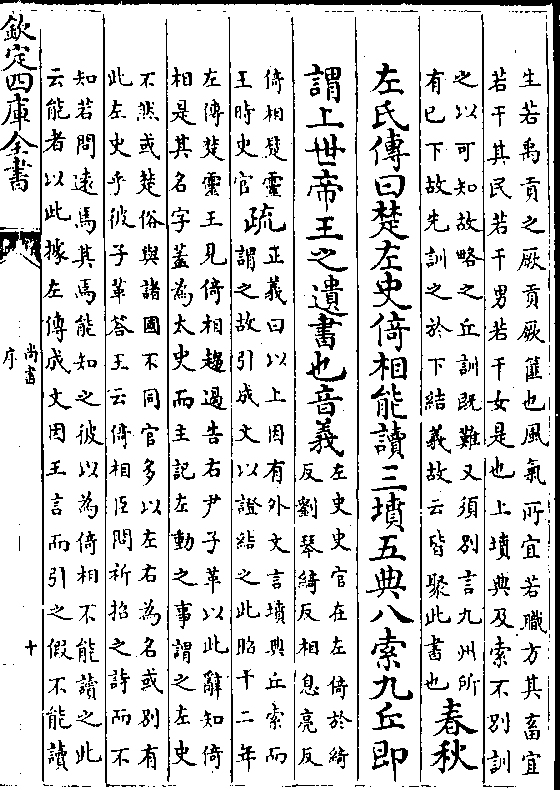 生若禹貢之厥貢厥篚也風氣所宜若職方其畜宜
若干其民若干男若干女是也上墳典及索不別訓
之以可知故略之丘訓既難又須別言九州所
有已下故先訓之於下結義故云皆聚此書也
春秋
左氏傳曰楚左史倚相能讀三墳五典八索九丘即
謂上世帝王之遺書也音義
左史史官在左倚於綺
反劉琴綺反相息亮反
倚相楚靈
王時史官
疏
正義曰以上因有外文言墳典丘索而
謂之故引成文以證結之此昭十二年
左傳楚靈王見倚相趨過告右尹子革以此辭知倚
相是其名字蓋為太史而主記左動之事謂之左史
不然或楚俗與諸國不同官多以左右為名或別有
此左史乎彼子革荅王云倚相臣問祈招之詩而不
知若問遠焉其焉能知之彼以為倚相不能讀之此
云能者以此據左傳成文因王言而引之假不能讀
欽定四庫全書
尚書
序
十